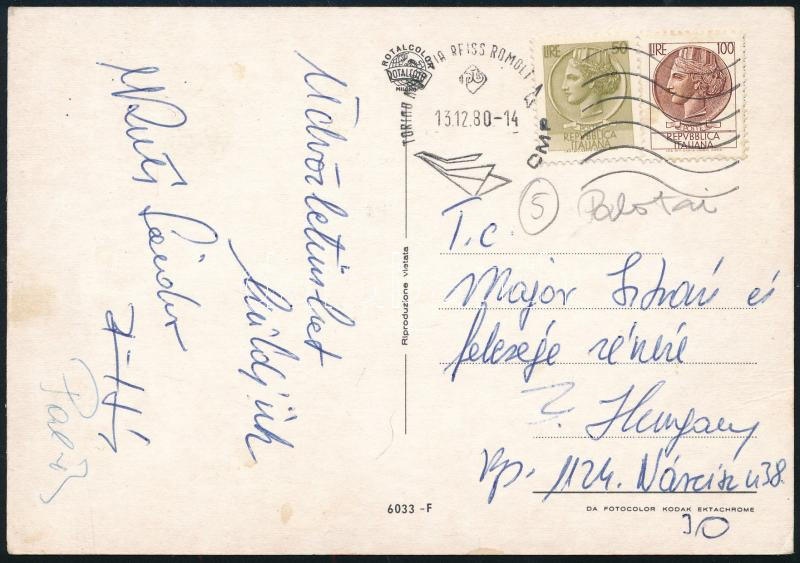 Üdvözletünket
küldjük
Sándor
ROTALCOLOR
ROTALCOLOR
MILANO
TORINO
VIA REISS ROMOLI
13.12.80-14
CMP
LIRE 50
REPVBBLICA
ITALIANA
LIRE 100
REPVBBLICA
ITALIANA
5 Palotai
T.c.
Major István és
felesége részére
Hungary
Bp. 1124. Nárcisz u 38.
Riproduzione vietata
6033 -F
DA FOTOCOLOR KODAK EKTACHROME